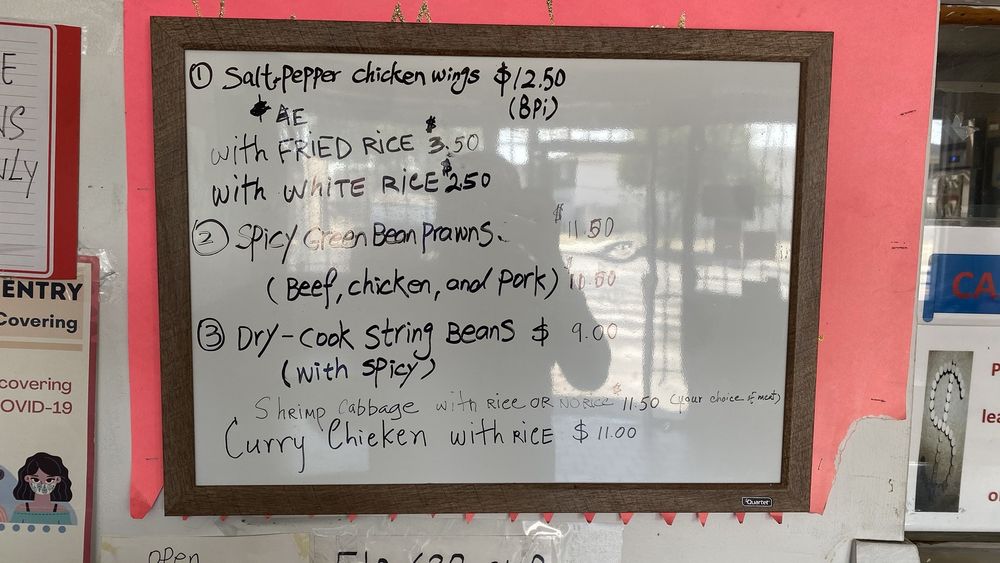 ① Salt-Pepper chicken wings $12.50
(8pi)
with FRIED RICE $3.50
with WHITE RICE $2.50
② Spicy Green Bean Prawns. $11.50
(Beef, chicken, and Pork) 10.50
③ Dry-cook String Beans $ 9.00
(with spicy)
Shrimp Cabbage with Rice OR NO RICE $11.50 (your choice of meat)
Curry Chicken with RICE $ 11.00
Quartet
E
NS
NLY
ENTRY
Covering
covering
OVID-19
CA
P
lea
o
open